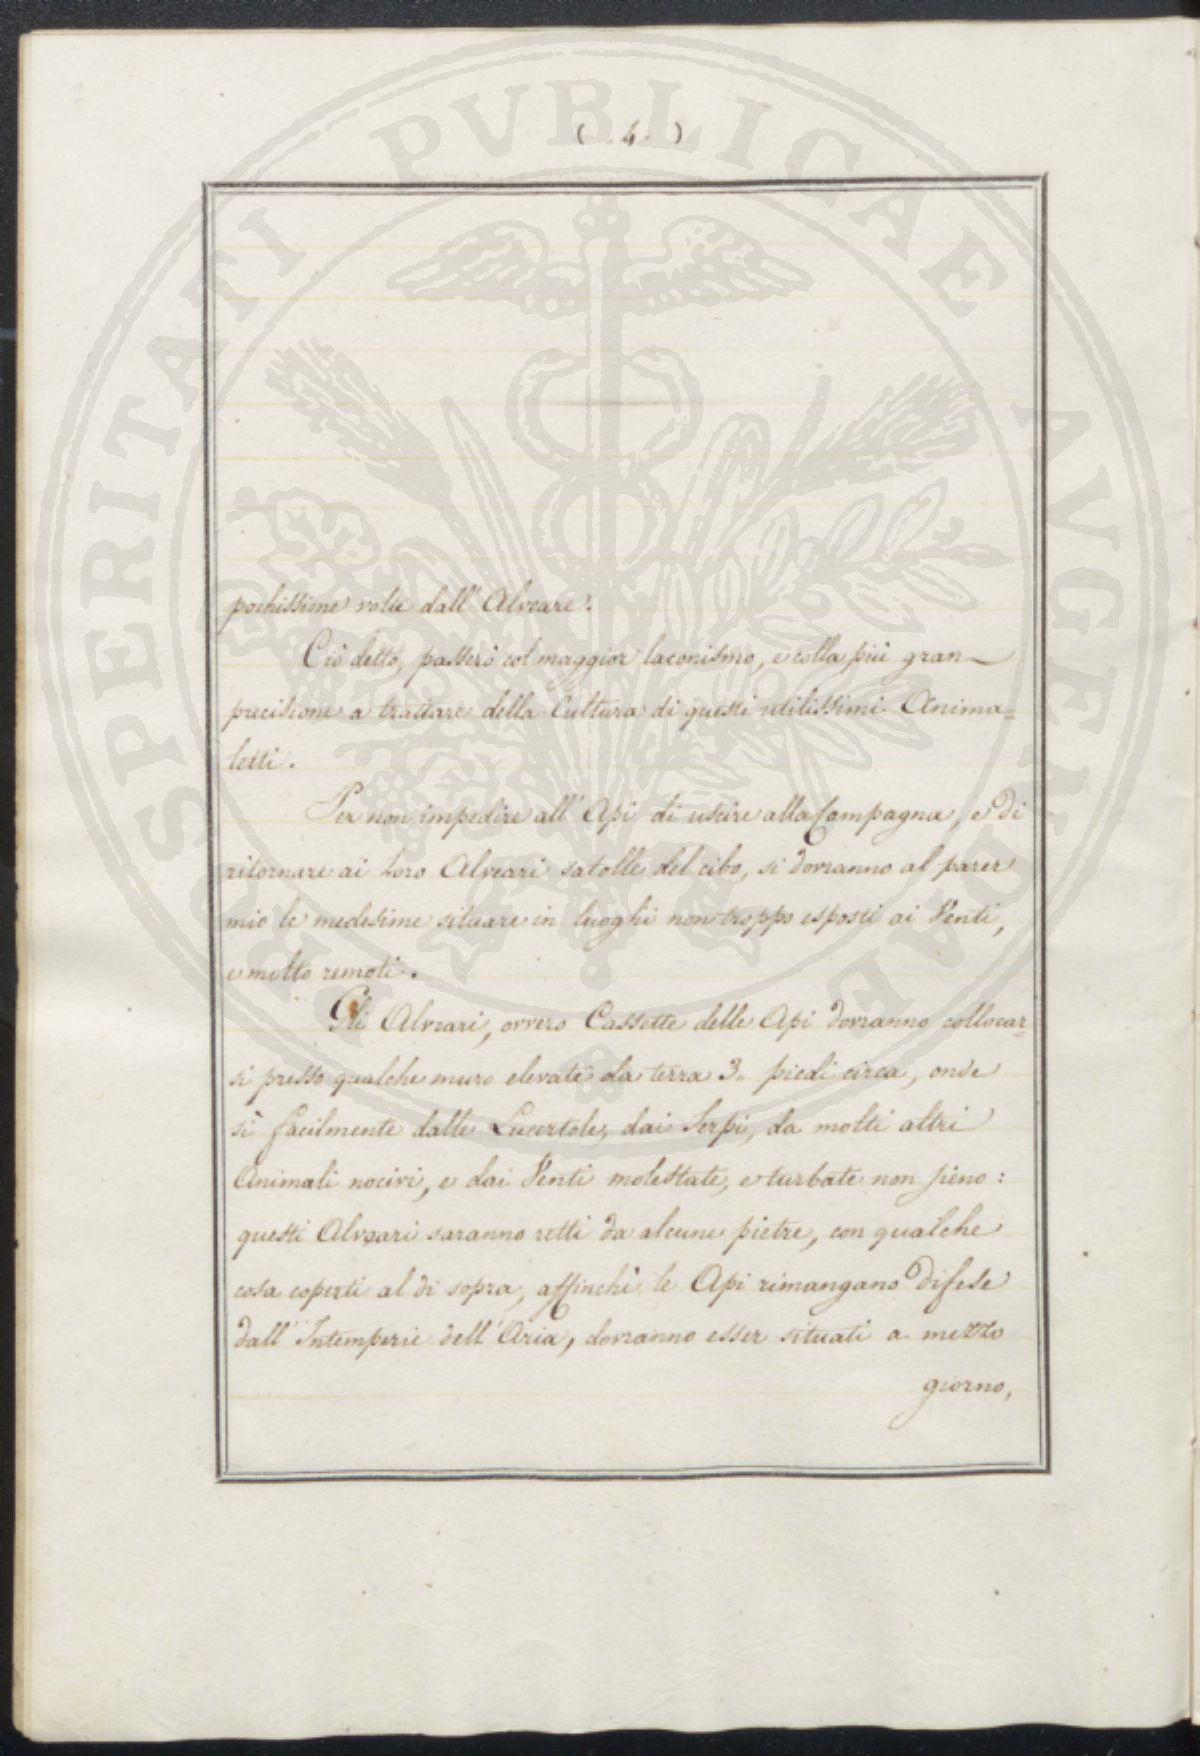 ( . 4 . )
pochissime volte dall' Alveare.
Ciò detto, passerò col maggior laconismo, e colla più gran
precisione a trattare della Cultura di questi utilissimi Anima=
letti.
Per non impedire all' Api di uscire alla Campagna, e di
ritornare ai loro Alveari satolle del cibo, si dovranno al parer
mio le medesime situare in luoghi non troppo esposti ai Venti,
e molto remoti.
Gli Alveari, ovvero Cassette delle Api dovranno collocar=
si presso qualche muro elevate da terra 3. piedi circa, onde
sì facilmente dalle Lucertole, dai Serpi, da molti altri
Animali nocivi, e dai Venti molestate, e turbate non sieno:
questi Alveari saranno retti da alcune pietre, con qualche
cosa coperti al di sopra, affinchè le Api rimangano difese
dall' Intemperie dell' Aria, dovranno esser situati a mezzo
giorno,
PROSPERITATI PVBLICAE AVGENDAE